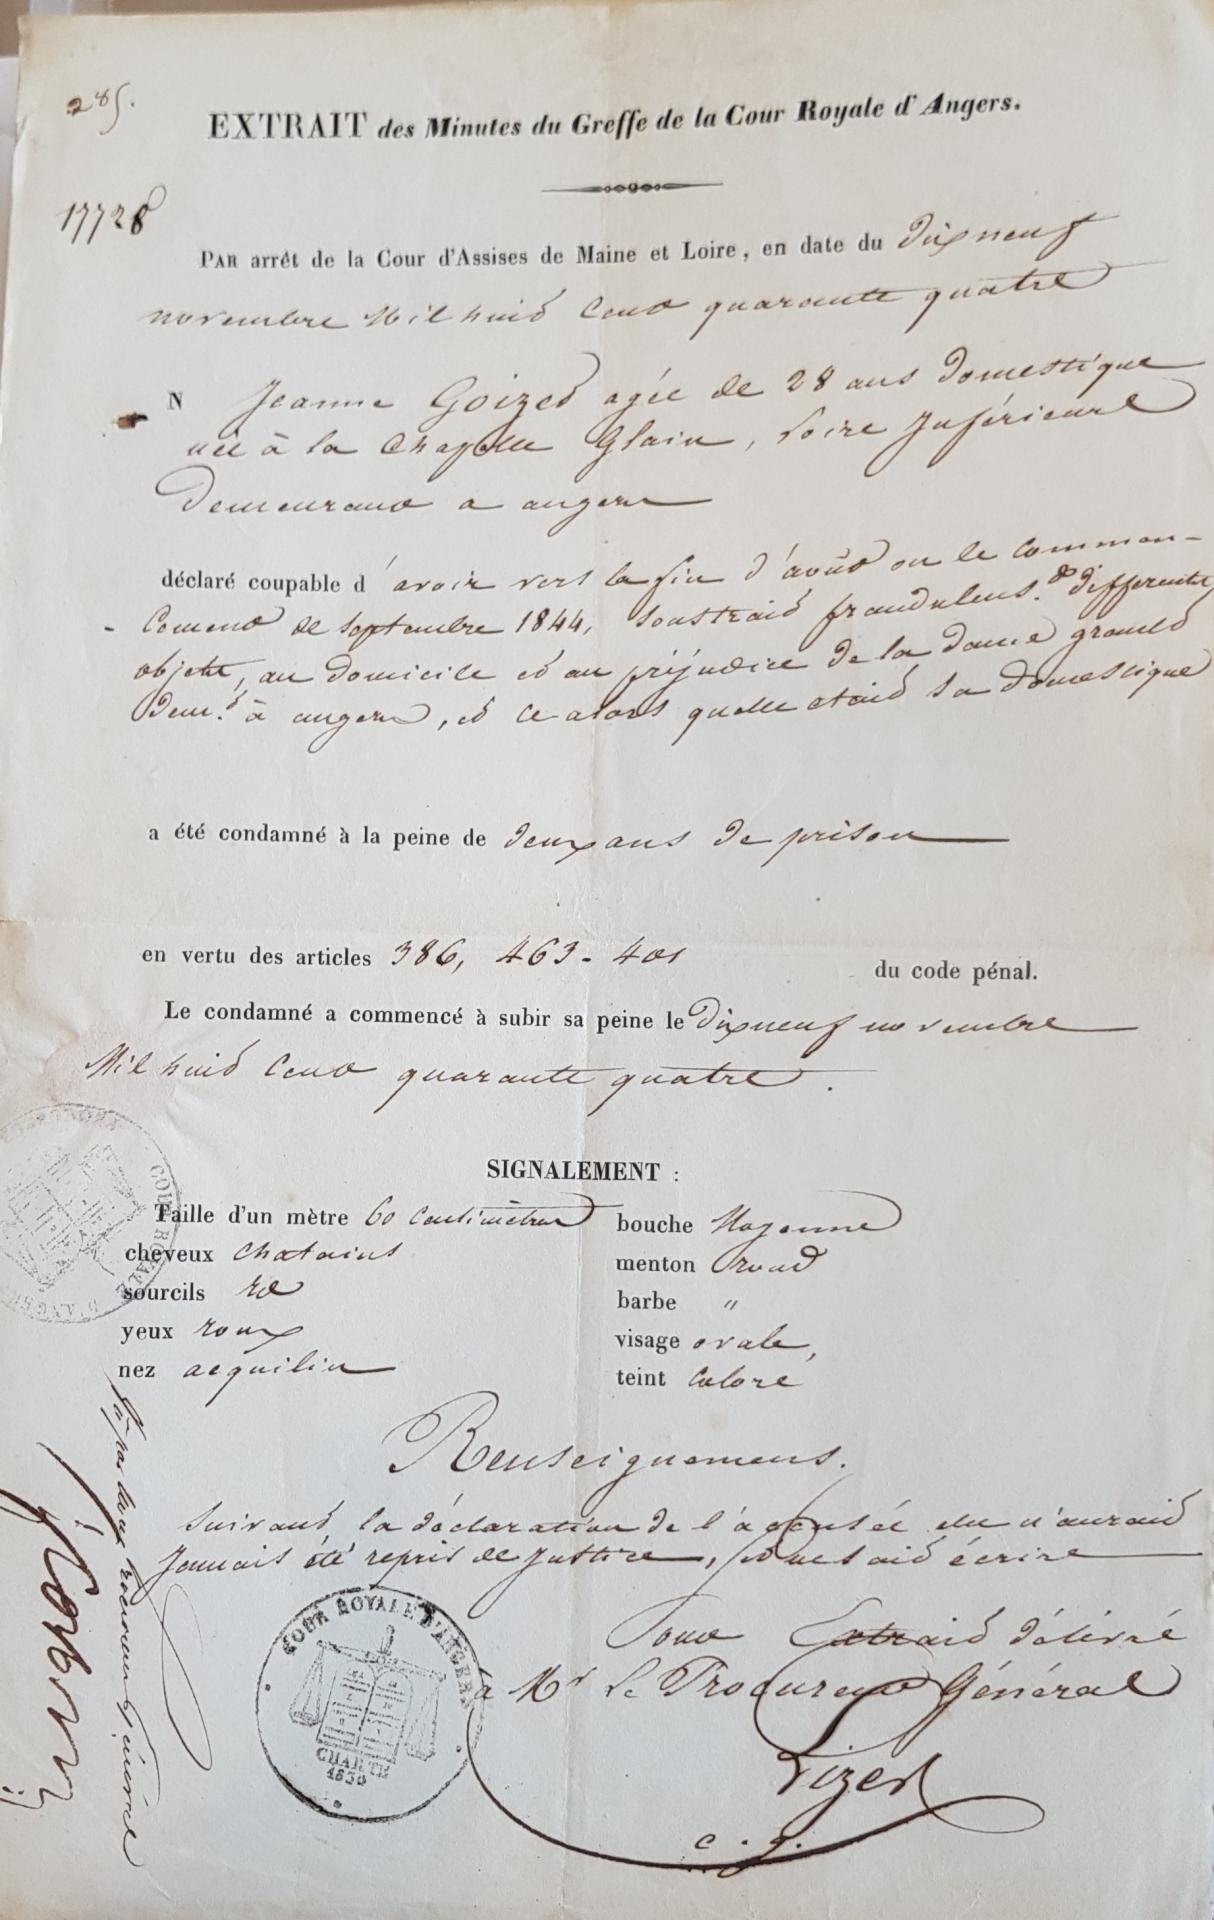 285.
EXTRAIT des Minutes du Greffe de la Cour Royale d'Angers.
17728
PAR arrêt de la Cour d'Assises de Maine et Loire, en date du dix neuf
novembre Mil huit Cent quarante quatre
N Jeanne Goized agée de 28 ans domestique
née à la Chapelle Glain, Loire Inférieure
demeurant a angers
déclaré coupable d'avoir vers la fin d'août ou le commen-
-cement de septembre 1844, soustrait fraudulens.t differents
objets, au domicile et au préjudice de la dame
dem.t à angers, et ce alors quelle etait sa domestique
a été condamné à la peine de deux ans de prison
en vertu des articles 386, 463 - 401 du code pénal.
Le condamné a commencé à subir sa peine le dix neuf novembre
Mil huit Cent quarante quatre.
SIGNALEMENT :
Taille d'un mètre 60 Centimètres
cheveux chatains
sourcils
yeux roux
nez acquilin
bouche Moyenne
menton rond
barbe "
visage ovale,
teint Coloré
Renseignemens.
Suivant la déclaration de l'accusée elle n'aurait
Jamais été repris de Justice, et ne sait écrire
Pour Extrait délivré
à Mr Le Procureur Général
c. g.
COUR ROYALE D'ANGERS
CHARTE
1830
COUR ROYALE D'ANGERS